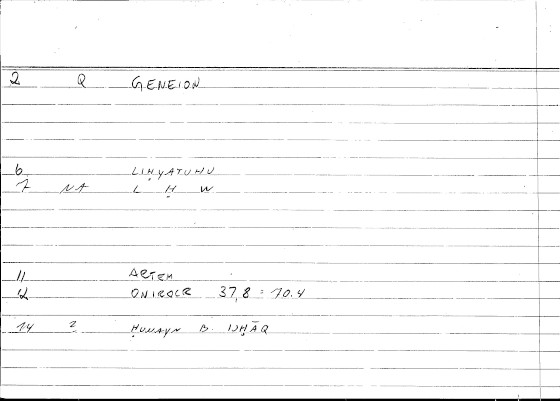 2 Q GENEION
6 LIḤYATUHU
7 NA L Ḥ W
11 ARTEM
12 ONIROCR 37,8 : 70.4
14 2 ḤUNAYN B. ISḤĀQ